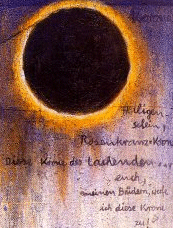 Heiligen-
schein,
Rosenkranz-Krone
Diese Krone des Lachenden...
euch,
meinen Brüdern, werfe
ich diese Krone
zu!